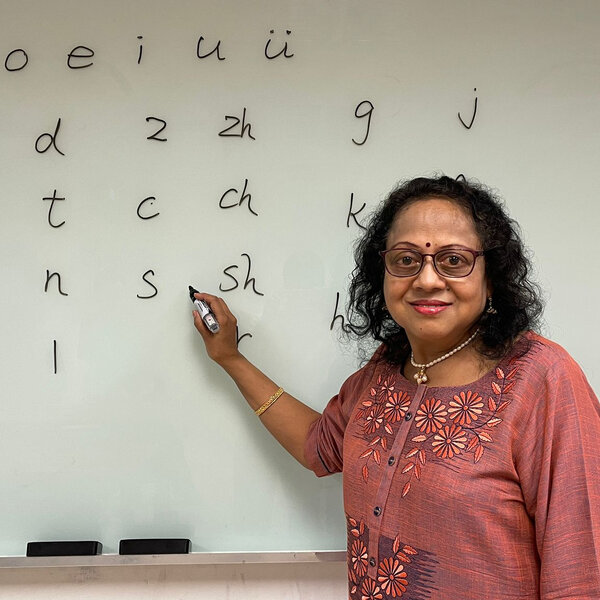 o e i u ü
d z zh g j
t c ch k
n s sh h
l r